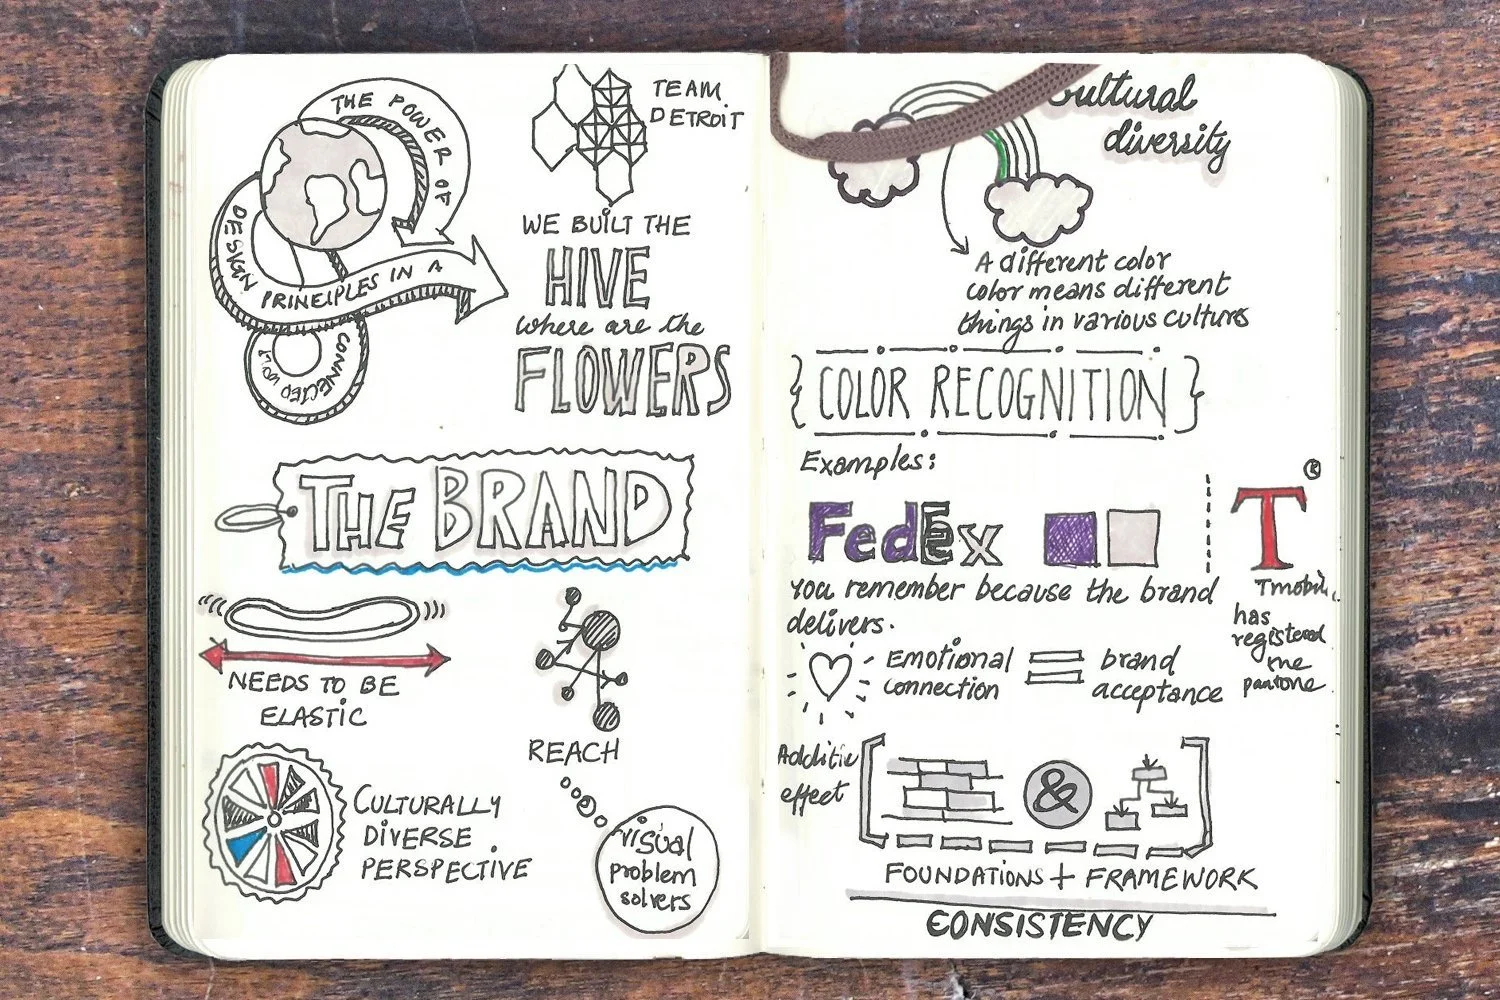 THE POWER OF
DESIGN PRINCIPLES IN A
CONNECTED WORLD
TEAM
DETROIT
WE BUILT THE
HIVE
where are the
FLOWERS
THE BRAND
NEEDS TO BE
ELASTIC
REACH
CULTURALLY
DIVERSE
PERSPECTIVE
visual
problem
solvers
Cultural
diversity
A different color
color means different
things in various cultures
{ COLOR RECOGNITION }
Examples:
FedEx
you remember because the brand
delivers.
T ®
Tmobil
has
registered
the
pantone
Emotional
connection
=
brand
acceptance
Additive
effect
[ & ]
FOUNDATIONS + FRAMEWORK
CONSISTENCY